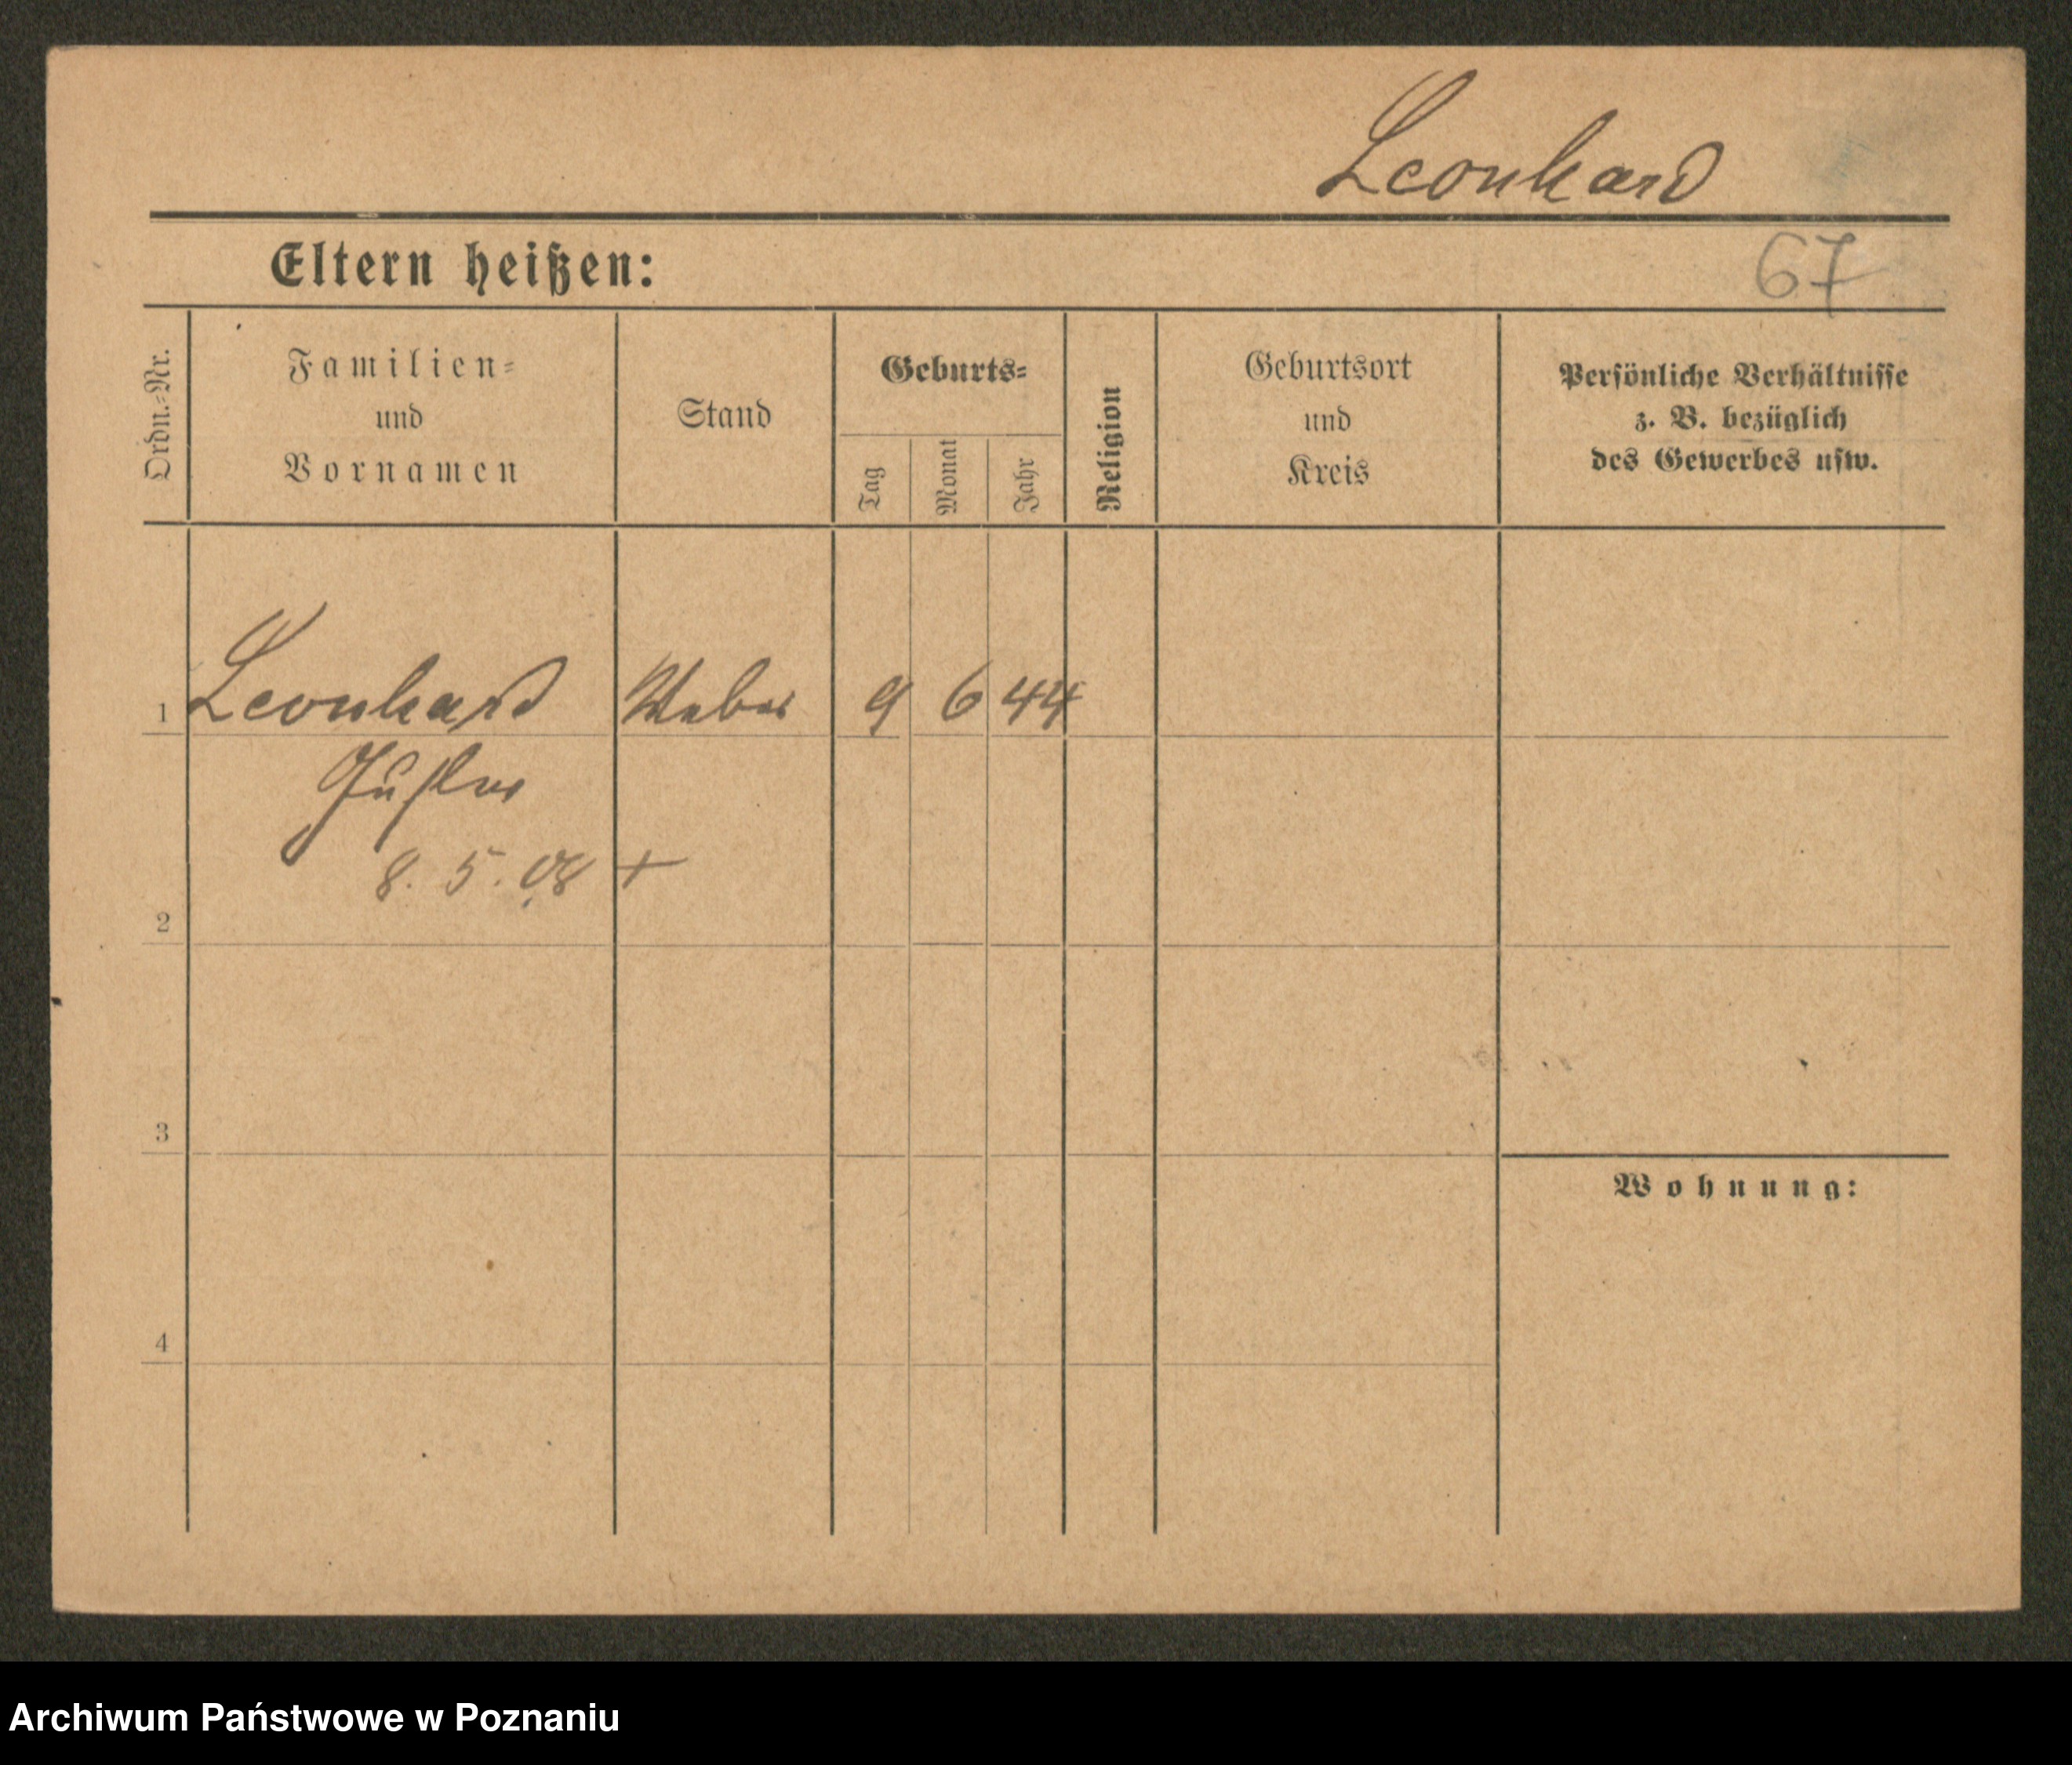 Leonhard
Eltern heißen:
67
Ordn.-Nr.
Familien-
und
Vornamen
Stand
Geburts-
Tag
Monat
Jahr
Religion
Geburtsort
und
Kreis
Persönliche Verhältnisse
z. B. bezüglich
des Gewerbes usw.
1 Leonhard Weber 9 6 44
8. 5. 08 +
2
3
Wohnung:
4
Archiwum Państwowe w Poznaniu